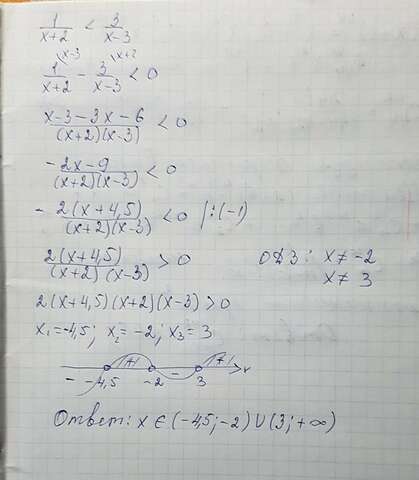 1/(x+2) < 3/(x-3)
1\x-3/(x+2) - 3\x+2/(x-3) < 0
(x-3-3x-6)/((x+2)(x-3)) < 0
(-2x-9)/((x+2)(x-3)) < 0
- 2(x+4,5)/((x+2)(x-3)) < 0 |:(-1)
2(x+4,5)/((x+2)(x-3)) > 0 ОДЗ: x≠-2
x≠3
2(x+4,5)(x+2)(x-3)>0
x₁=-4,5; x₂=-2; x₃=3
- + - + x
-4,5 -2 3
Ответ: x ∈ (-4,5;-2)∪(3;+∞)